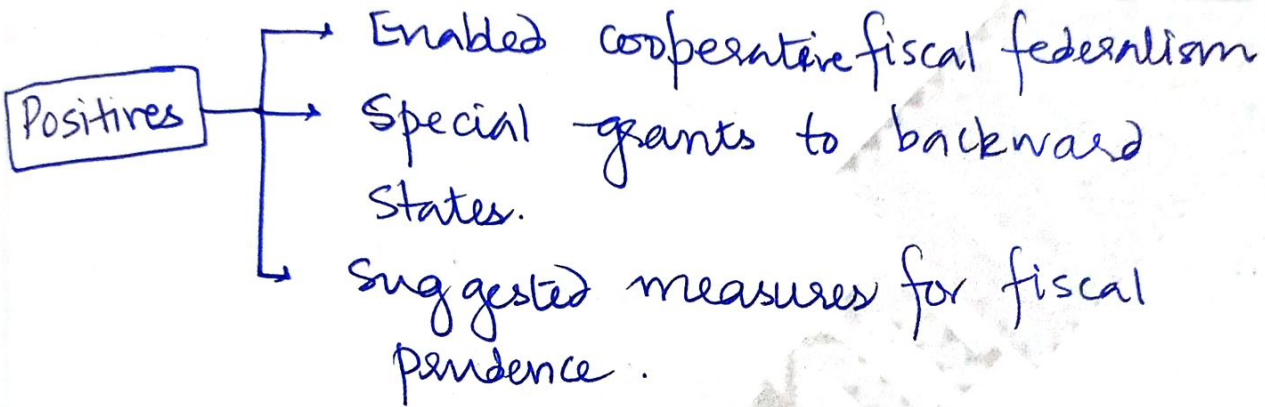 Enabled cooperative fiscal federalism
Positives
Special grants to backward
states.
Suggested measures for fiscal
prudence.